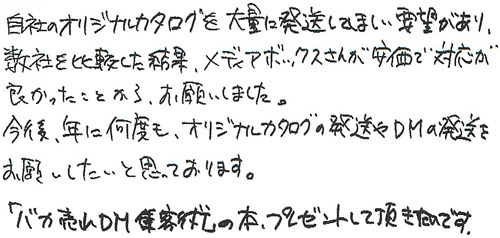 自社のオリジナルカタログを大量に発送してほしい要望があり、
数社を比較した結果、メディアボックスさんが安価で対応が
良かったことから、お願いしました。
今後、年に何度も、オリジナルカタログの発送やDMの発送を
お願いしたいと思っております。
「バカ売れDM集客術」の本、プレゼントして頂きたいです。